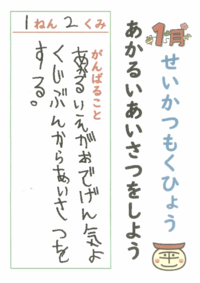 1月
せいかつもくひょう
あかるいあいさつをしよう
1ねん2くみ
がんばること
あかるいえがおでげん気よ
くじぶんからあいさつを
する。